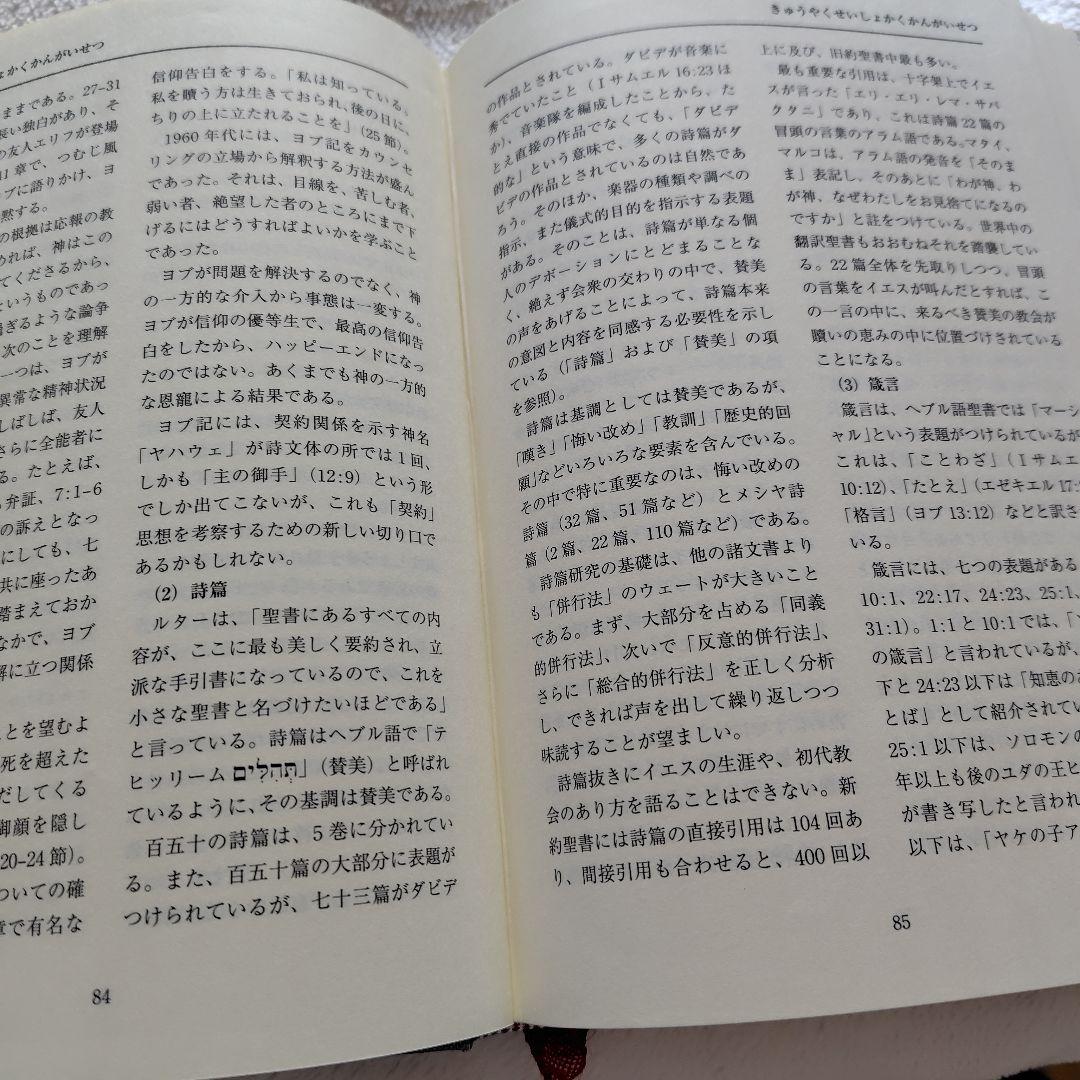 ょかくかんがいせつ
ままである。27–31
長い独白があり、そ
の友人エリフが登場
章で、つむじ風
ブに語りかけ、ヨ
黙する。
の根拠は応報の教
めれば、神はこの
てくださるから、
というものであっ
過ぎるような論争
次のことを理解
一つは、ヨブが
異常な精神状況
しばしば、友人
さらに全能者に
る。たとえば、
弁証、7:1–6
の訴えとなっ
にしても、七
共に座ったあ
踏まえておか
なかで、ヨブ
解に立つ関係
ことを望むよ
死を超えた
だしてくる
御顔を隠し
20–24節)。
ついての確
章で有名な
信仰告白をする。「私は知っている。
私を贖う方は生きておられ、後の日に、
ちりの上に立たれることを」(25節)。
1960年代には、ヨブ記をカウンセ
リングの立場から解釈する方法が盛ん
であった。それは、目線を、苦しむ者、
弱い者、絶望した者のところにまで下
げるにはどうすればよいかを学ぶこと
であった。
ヨブが問題を解決するのでなく、神
の一方的な介入から事態は一変する。
ヨブが信仰の優等生で、最高の信仰告
白をしたから、ハッピーエンドになっ
たのではない。あくまでも神の一方的
な恩寵による結果である。
ヨブ記には、契約関係を示す神名
「ヤハウェ」が詩文体の所では1回、
しかも「主の御手」(12:9)という形
でしか出てこないが、これも「契約」
思想を考察するための新しい切り口で
あるかもしれない。
(2) 詩篇
ルターは、「聖書にあるすべての内
容が、ここに最も美しく要約され、立
派な手引書になっているので、これを
小さな聖書と名づけたいほどである」
と言っている。詩篇はヘブル語で「テ
ヒッリーム תְּהִלִּים」(賛美)と呼ばれ
ているように、その基調は賛美である。
百五十の詩篇は、5巻に分かれてい
る。また、百五十篇の大部分に表題が
つけられているが、七十三篇がダビデ
84
きゅうやくせいしょかくかんがいせつ
の作品とされている。ダビデが音楽に
秀でていたこと(Ⅰサムエル16:23ほ
か)、音楽隊を編成したことから、た
とえ直接の作品でなくても、「ダビデ
的な」という意味で、多くの詩篇がダ
ビデの作品とされているのは自然であ
ろう。そのほか、楽器の種類や調べの
指示、また儀式的目的を指示する表題
がある。そのことは、詩篇が単なる個
人のデボーションにとどまることな
く、絶えず会衆の交わりの中で、賛美
の声をあげることによって、詩篇本来
の意図と内容を同感する必要性を示し
ている(「詩篇」および「賛美」の項
を参照)。
詩篇は基調としては賛美であるが、
「嘆き」「悔い改め」「教訓」「歴史的回
顧」などいろいろな要素を含んでいる。
その中で特に重要なのは、悔い改めの
詩篇(32篇、51篇など)とメシヤ詩
篇(2篇、22篇、110篇など)である。
詩篇研究の基礎は、他の諸文書より
も「併行法」のウェートが大きいこと
である。まず、大部分を占める「同義
的併行法」、次いで「反意的併行法」、
さらに「総合的併行法」を正しく分析
し、できれば声を出して繰り返しつつ
味読することが望ましい。
詩篇抜きにイエスの生涯や、初代教
会のあり方を語ることはできない。新
約聖書には詩篇の直接引用は104回あ
り、間接引用も合わせると、400回以
上に及び、旧約聖書中最も多い。
最も重要な引用は、十字架上でイエ
スが言った「エリ・エリ・レマ・サバ
クタニ」であり、これは詩篇22篇の
冒頭の言葉のアラム語である。マタイ、
マルコは、アラム語の発音を「そのま
ま」表記し、そのあとに「わが神、わ
が神、なぜわたしをお見捨てになるの
ですか」と註をつけている。世界中の
翻訳聖書もおおむねそれを踏襲してい
る。22篇全体を先取りしつつ、冒頭
の言葉をイエスが叫んだとすれば、こ
の一言の中に、来るべき賛美の教会が
贖いの恵みの中に位置づけされている
ことになる。
(3) 箴言
箴言は、ヘブル語聖書では「マーシ
ャル」という表題がつけられているが
これは、「ことわざ」(Ⅰサムエ
10:12)、「たとえ」(エゼキエル17:
「格言」(ヨブ13:12)などと訳さ
いる。
箴言には、七つの表題がある
10:1、22:17、24:23、25:1、
31:1)。1:1と10:1では、「
の箴言」と言われているが、
下と24:23以下は「知恵の
とば」として紹介されてい
25:1以下は、ソロモンの
年以上も後のユダの王ヒ
が書き写したと言われ
以下は、「ヤケの子ア
85